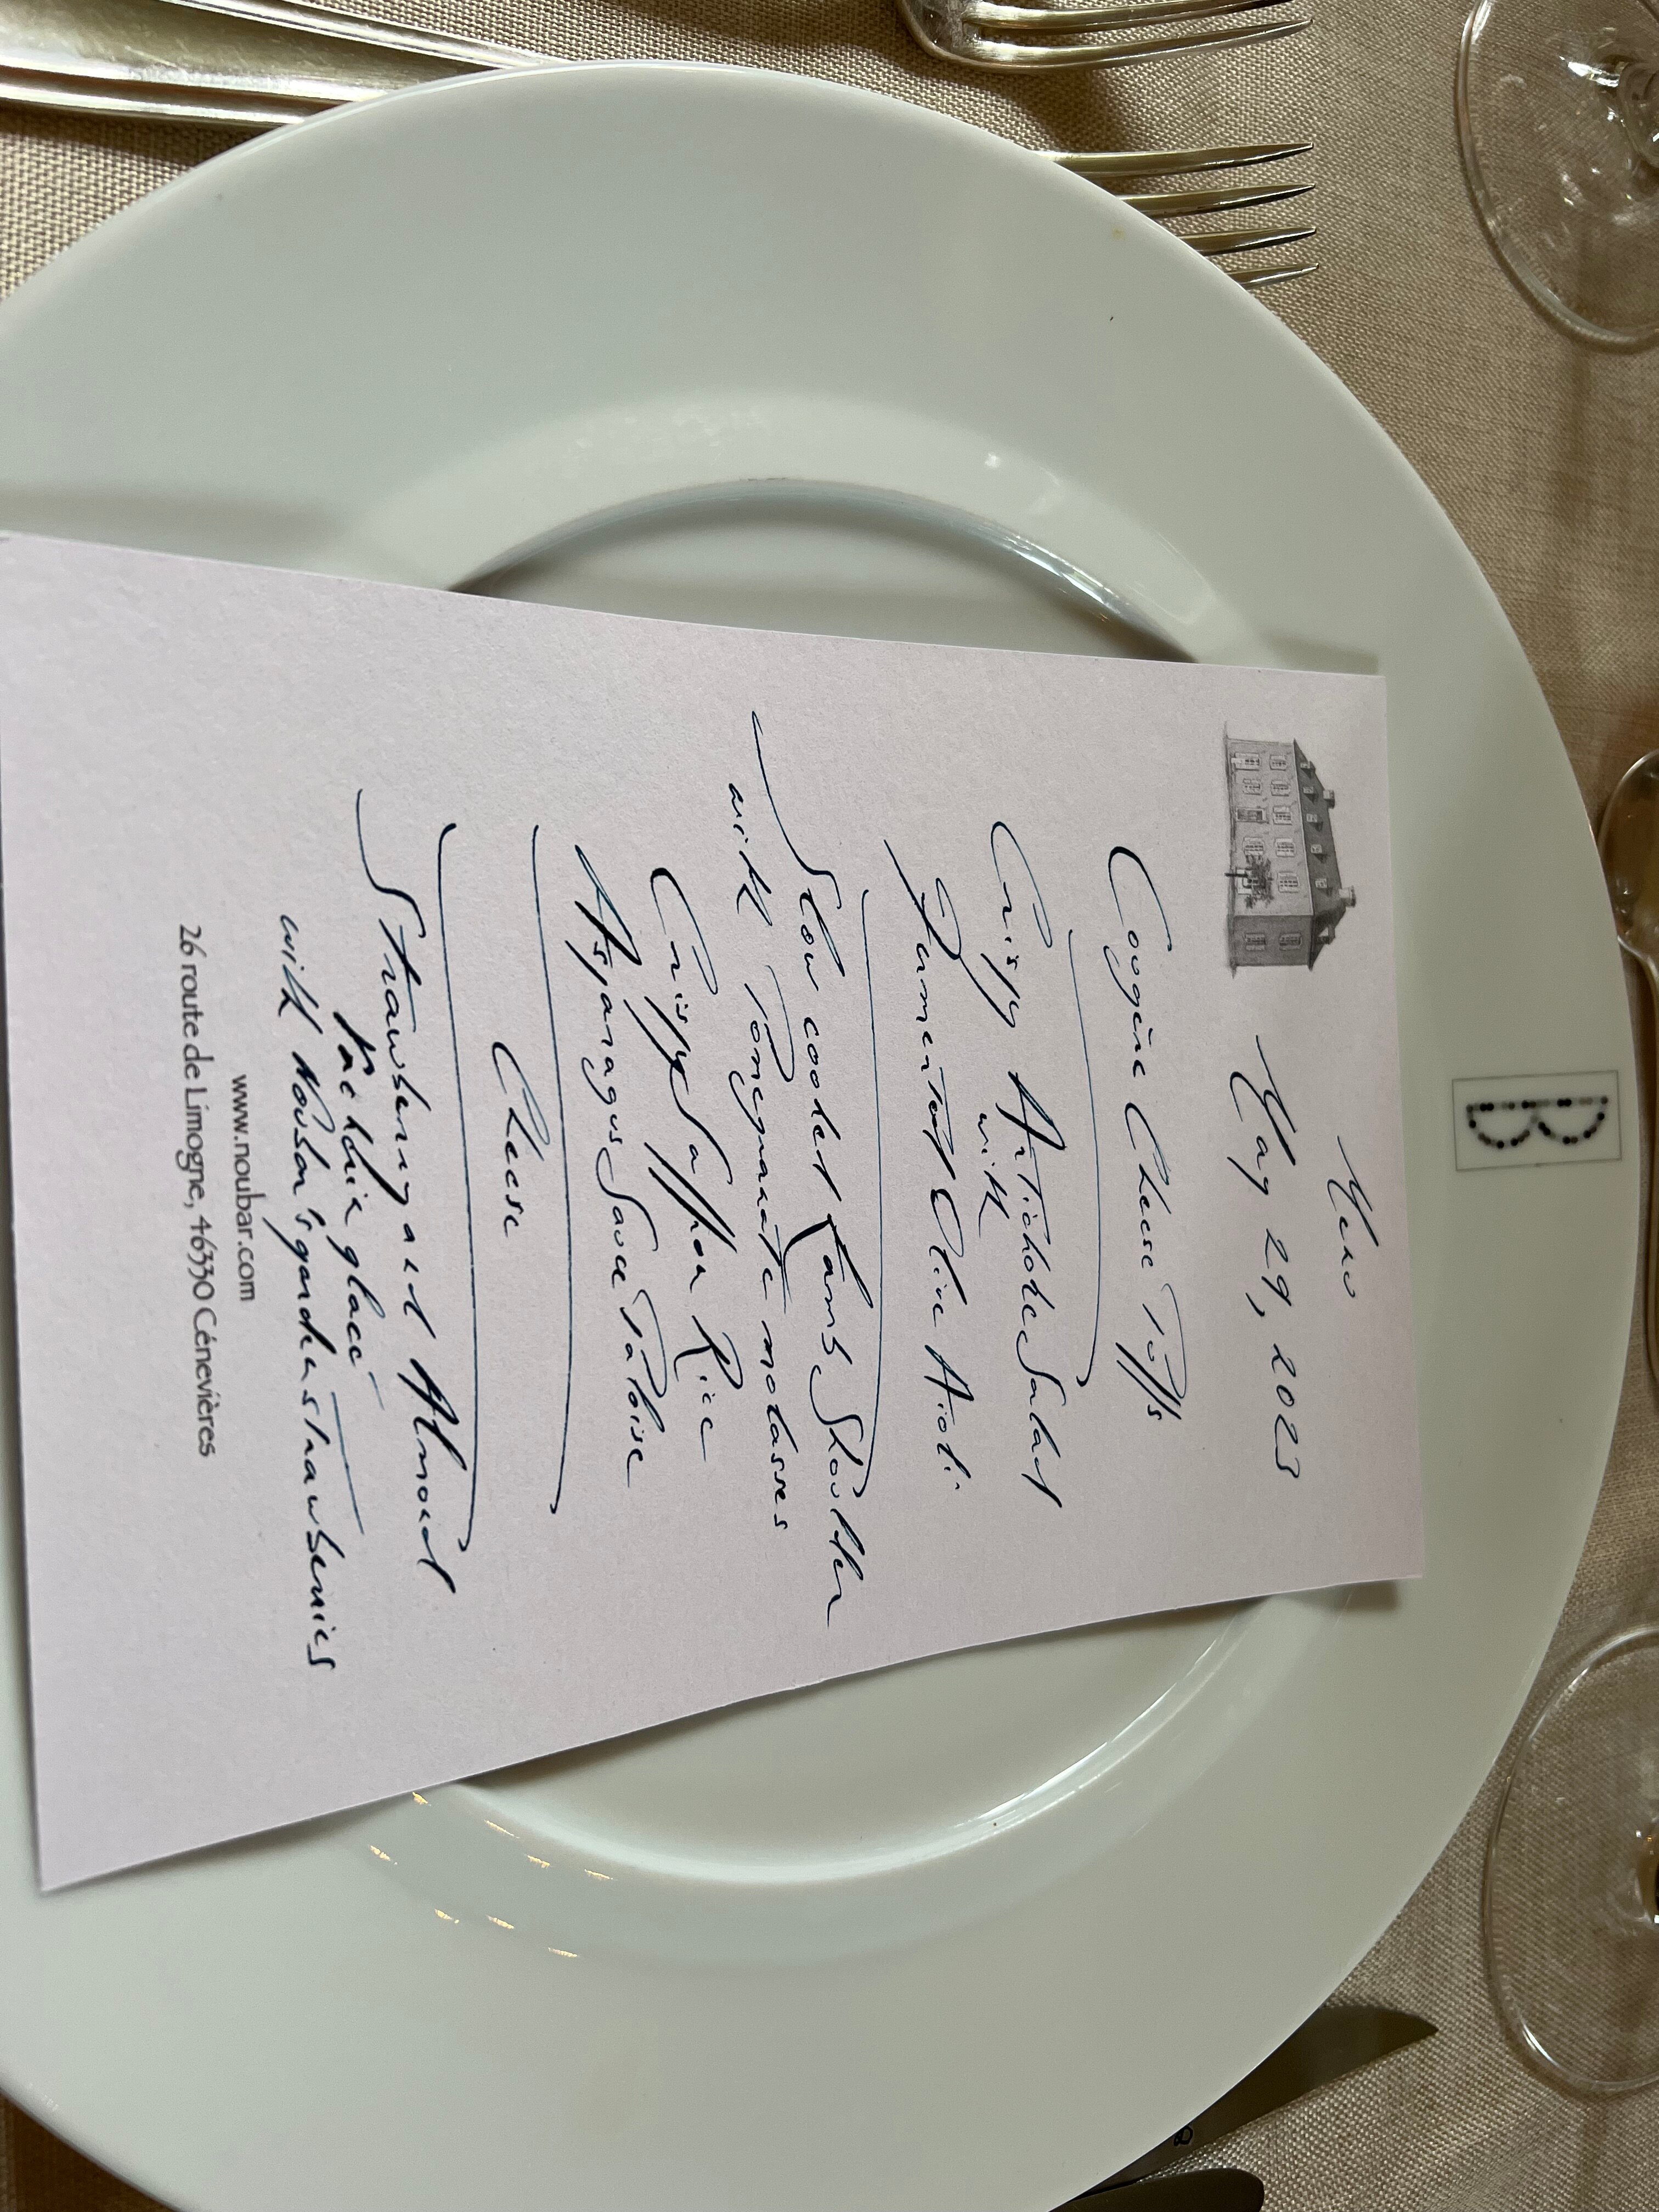 B
Menu
May 29, 2023
Cougère Cheese Puffs
Crispy Artichoke Salad
with
Fermented Olive Aioli
Slow cooked Lamb Shoulder
with Pomegranate molasses
Crispy Saffron Rice
Asparagus Sauce Paloise
Cheese
Strawberry and Almond
Vacherin glacé
with Noubar's garden strawberries
www.noubar.com
26 route de Limogne, 46330 Cénevières